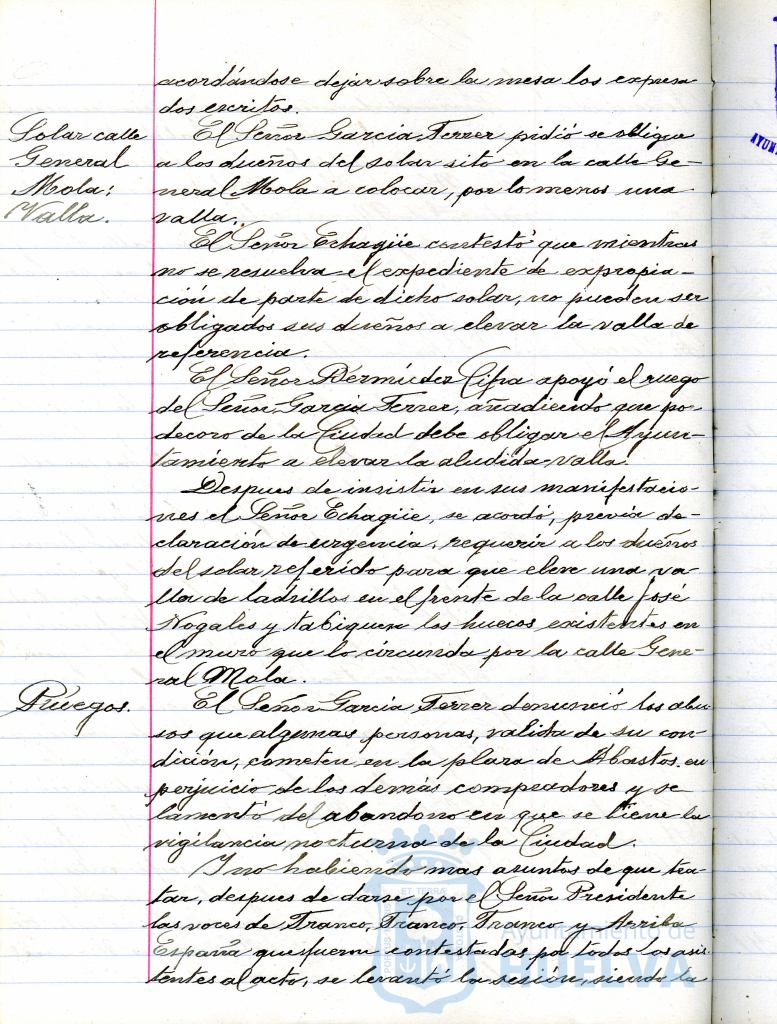 acordándose dejar sobre la mesa los expresa-
dos escritos.
Solar calle
General
Mola:
Valla.
El Señor Garcia Ferrer pidió se obligue
a los dueños del solar sito en la calle Ge-
neral Mola a colocar, por lo menos una
valla.
El Señor Echagüe contestó que mientras
no se resuelva el expediente de expropia-
ción de parte de dicho solar, no pueden ser
obligados sus dueños a elevar la valla de
referencia.
El Señor Bermúdez Cifra apoyó el ruego
del Señor Garcia Ferrer, añadiendo que por
decoro de la Ciudad debe obligar el Ayun-
tamiento a elevar la aludida valla.
Despues de insistir en sus manifestacio-
nes el Señor Echagüe, se acordó, previa de-
claración de urgencia, requerir a los dueños
del solar referido para que eleve una va-
lla de ladrillos en el frente de la calle José
Nogales y tabiquen los huecos existentes en
el muro que lo circunda por la calle Gene-
ral Mola.
Ruegos.
El Señor Garcia Ferrer denunció los abu-
sos que algunas personas, valida de su con-
dición, cometen en la plaza de Abastos en
perjuicio de los demás compradores y se
lamentó del abandono en que se tiene la
vigilancia nocturna de la Ciudad.
Y no habiendo mas asuntos de que tra-
tar, despues de darse por el Señor Presidente
las voces de Franco, Franco, Franco y Arriba
España que fueron contestadas por todos los asis-
tentes al acto, se levantó la sesión, siendo la
Ayuntamiento de
HUELVA